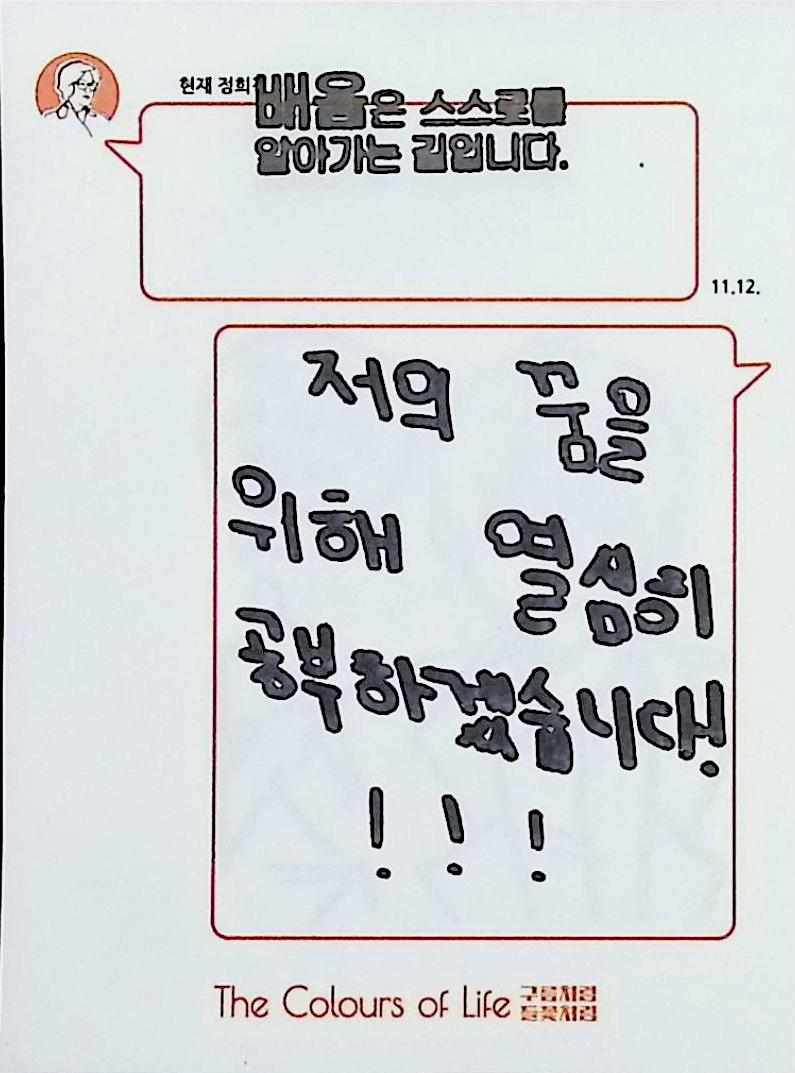 현재 정희
배움은 스스로를
알아가는 길입니다.
11.12.
저의 꿈을
위해 열심히
공부하겠습니다!
! ! !
The Colours of Life 구름처럼
들꽃처럼